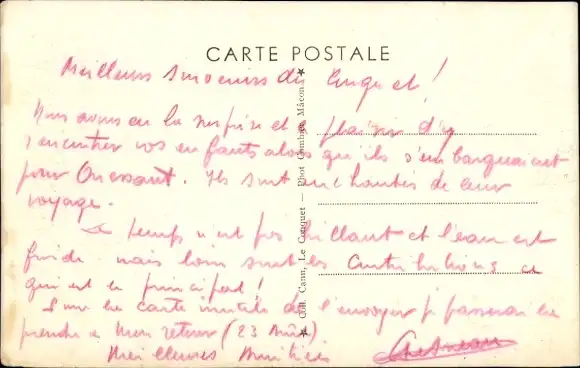 CARTE POSTALE
Meilleurs Souvenirs du Conquet !
Nous avons eu la surprise et le plaisir d'y
rencontrer vos enfants alors qu'ils s'embarquaient
pour Ouessant. Ils sont enchantés de leur
voyage.
Le temps n'est pas brillant et l'eau est
froide mais loin sont les contributions ce
qui est le principal !
Pour la carte inutile de l'envoyer je passerai la
prendre à mon retour (23 Août)
Meilleures Amitiés
★ Coll. Cann, Le Conquet — Phot Combier Mâcon ★